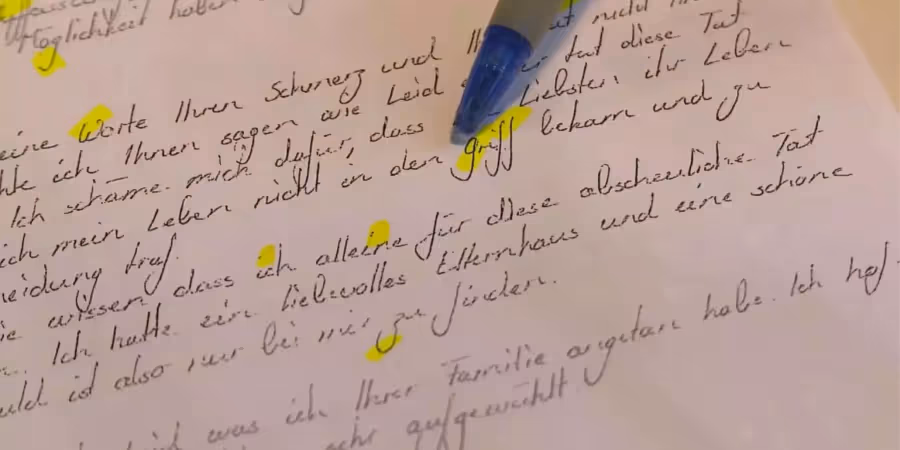 Möglichkeit haben
eine Worte Ihren Schmerz und
ich Ihnen sagen wie Leid tut diese Tat
Ich schäme mich dafür, dass Liebsten ihr Leben
ich mein Leben nicht in den griff bekam und zu
eidung traf.
ie wissen dass ich alleine für diese abscheuliche Tat
Ich hatte ein liebevolles Elternhaus und eine schöne
uld ist also nur bei mir zu finden.
was ich Ihrer Familie angetan habe. Ich hof
sehr aufgewühlt